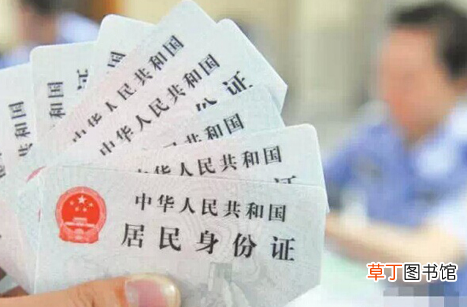 中华人民共和国
中华人民共和国
中华人民共和国
居民身份证
中华人民共和国
居民身份证
中华人民共和国
居民身份证
草丁图书馆